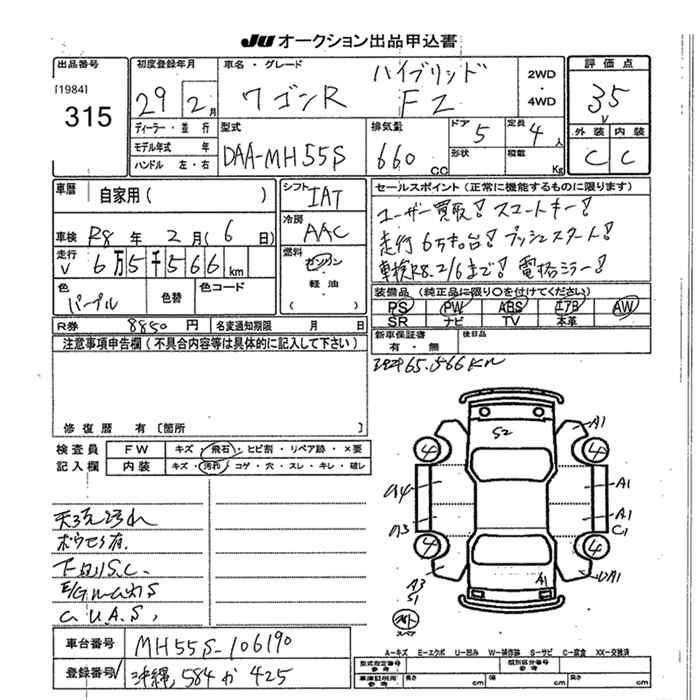 JU オークション出品申込書
出品番号
[1984]
315
初度登録年月
29 2月
車名・グレード
ワゴンR
ハイブリッド
FZ
2WD
・
4WD
評価点
3.5
外装 内装
C C
ディーラー・並行
モデル年式 年
ハンドル 左・右
型式
DAA-MH55S
排気量
660 CC
ドア 5
形状
定員 4 人
積載 Kg
車歴
自家用( )
車検 R8 年 2 月( 6 日)
走行
6万5千566km
色
パープル
色替
色コード
シフト
IAT
冷房
AAC
燃料
ガソリン
・
軽油
・
セールスポイント(正常に機能するものに限ります)
ユーザー買取! スマートキー!
走行6万キロ台! プッシュスタート!
車検R8.2/6まで! 電格ミラー!
装備品(純正品に限り○を付けてください)
PS PW ABS エアB AW
SR ナビ TV 本革
R券 8850円
名変通知期限 月 日
新車保証書
有・無
後日品
注意事項申告欄(不具合内容等は具体的に記入して下さい)
65,566Km
修復歴 有〔箇所
検査員
記入欄
FW キズ・飛石・ヒビ割・リペア跡・×要
内装 キズ・汚れ・コゲ・穴・スレ・キレ・破レ
S2
A1
4 4
A4 A1
A3 A1
C1
4 4
A3
S1
A1
UA1
スペア
天張汚れ
下廻りS.C.
車台番号 MH55S-106190
登録番号 沖縄 584 か 425
A-キズ E-エクボ U-凹み W-補修跡 S-サビ C-腐食 XX-交換済
型式指定番号
参考
類別区分番号
参考
車庫証明用
参考
長さ cm
幅 cm
高さ cm